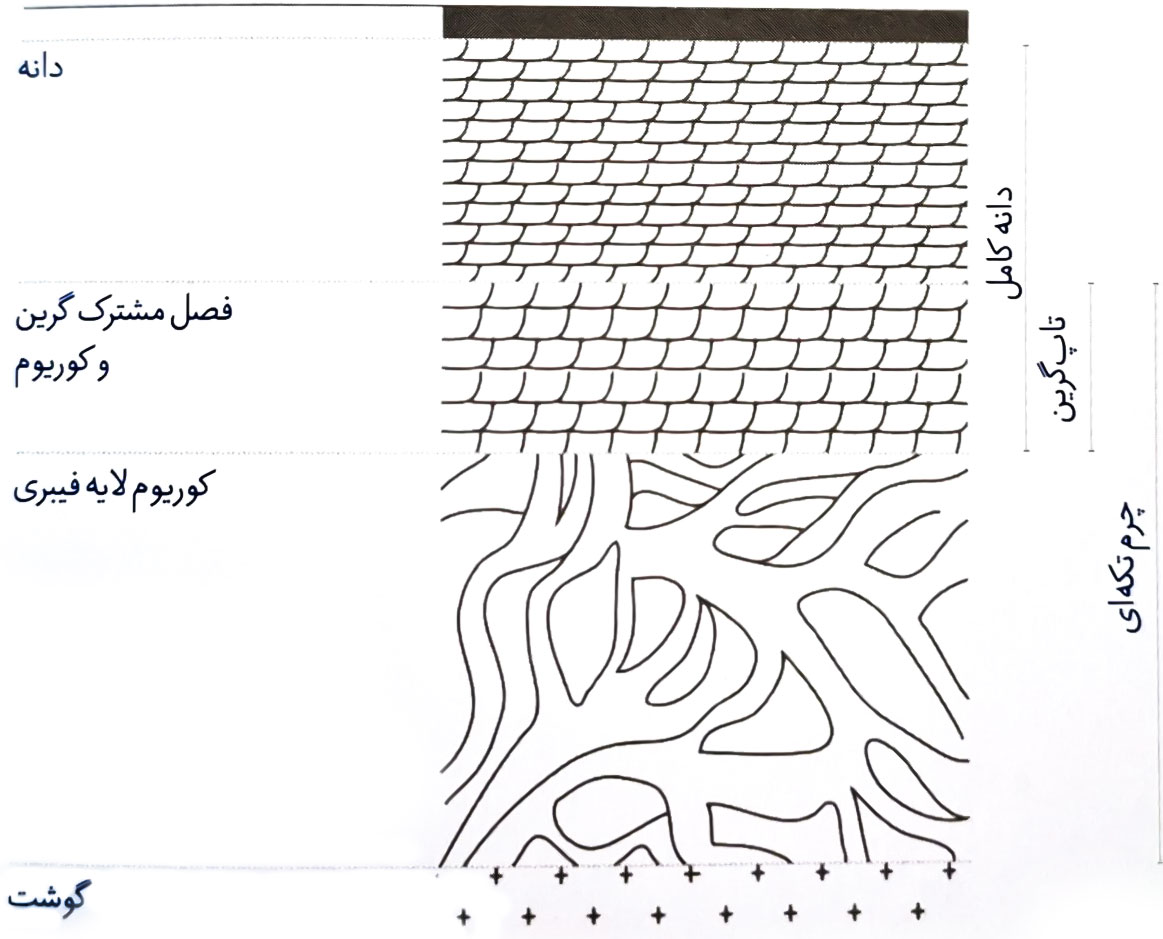 دانه
فصل مشترک گرین
و کوریوم
کوریوم لایه فیبری
گوشت
دانه کامل
تاپ‌گرین
چرم تکه‌ای